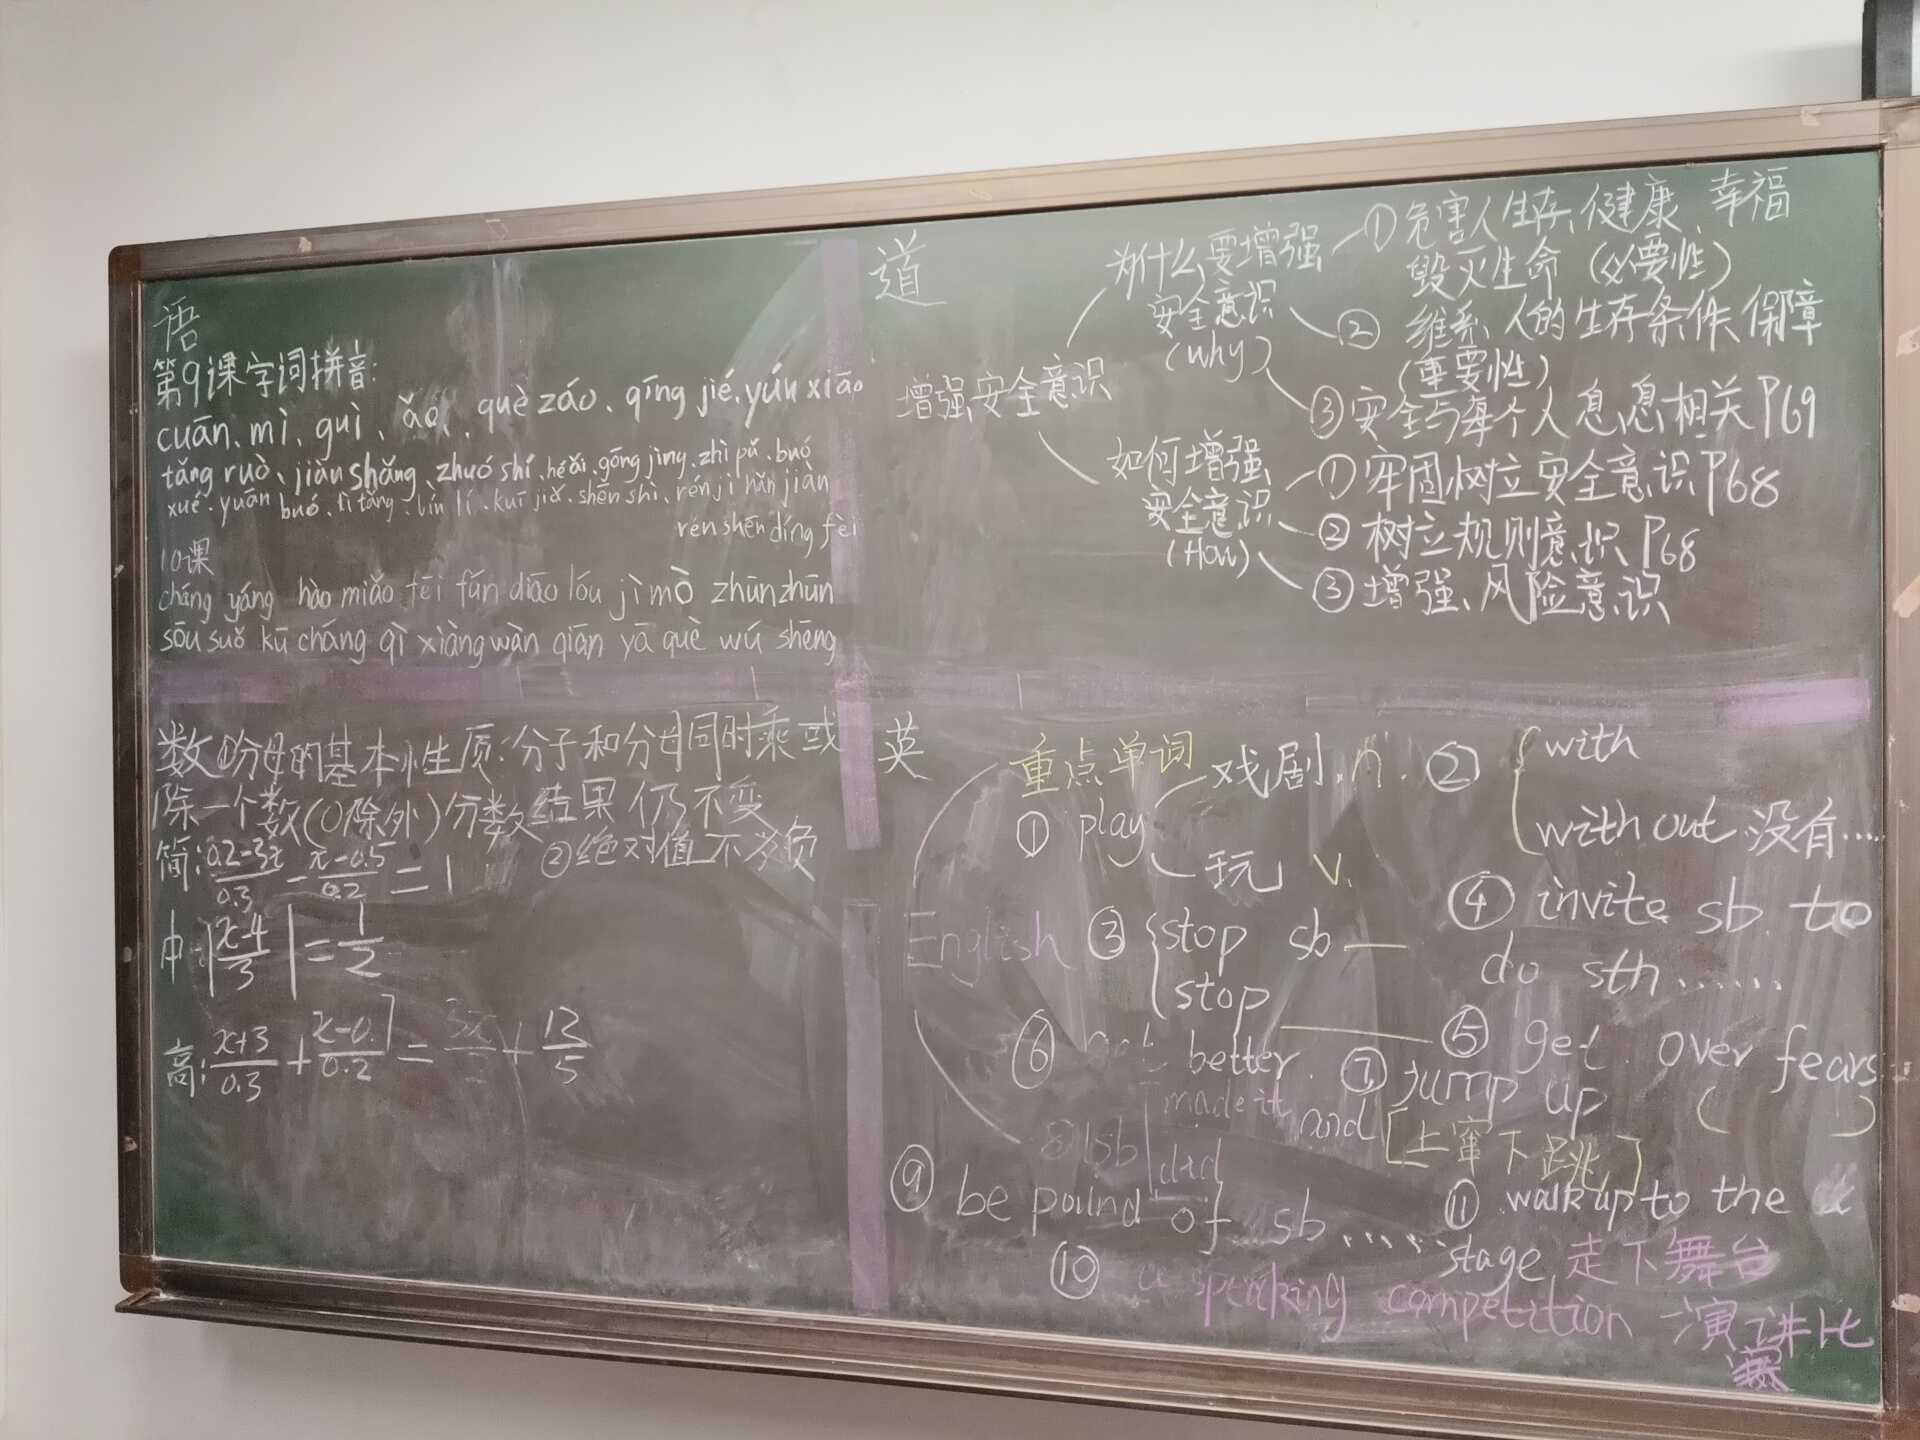 语
第9课字词拼音:
cuān、mì、guì、ǎo、què záo、qīng jié、yún xiāo
tǎng ruò、jiàn shǎng、zhuó shí、hé ǎi、gōng jìng、zhì pǔ、buó
xué、yuān buó、tì tǎng、lín lí、kuī jiǎ、shēn shì、rén jì hǎn jiàn
rén shēn dǐng fèi
10课
cháng yáng hào miǎo fēi fán diāo lóu jì mò zhūn zhūn
sōu suǒ kū cháng qì xiàng wàn qiān yā què wú shēng
道
增强安全意识
为什么要增强
安全意识
(why)
①危害人生存、健康、幸福
毁灭生命(必要性)
② 维系人的生存条件、保障
(重要性)
③安全与每个人息息相关P69
如何增强
安全意识
(How)
①牢固树立安全意识P68
②树立规则意识P68
③增强风险意识
数①分母的基本性质:分子和分母同时乘或
除一个数(0除外)分数结果仍不变
②绝对值不为负
简:0.2-3x/0.3 - x-0.5/0.2 = 1
中:|x-4/3| = 1/2
高:x+3/0.3 + x-0.1/0.2 = 3x + 12/5
英
English
重点单词
① play
戏剧.n.
玩 v.
② with
without 没有....
③ stop sb —
stop
④ invite sb. to
do sth ......
⑤ get over fears
( )
⑥ better.
⑦ jump up
and [上窜下跳]
⑧ sb
made it
did
⑨ be pound of sb ......
⑩ a speaking competition 演讲比
⑪ walk up to the
stage 走下舞台